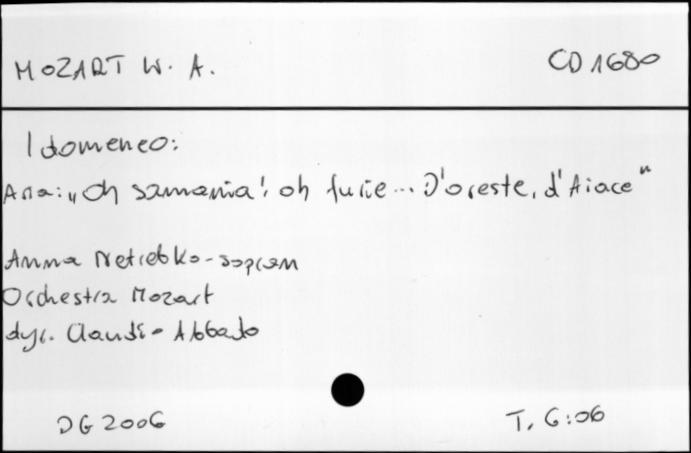 MOZART W. A.
CD 1680
Idomeneo:
Aria: „Oh smania! oh furie... D'oreste, d'Aiace"
Anna Netrebko - sopran
Orchestra Mozart
dyr. Claudio Abbado
DG 2006
T. 6:06